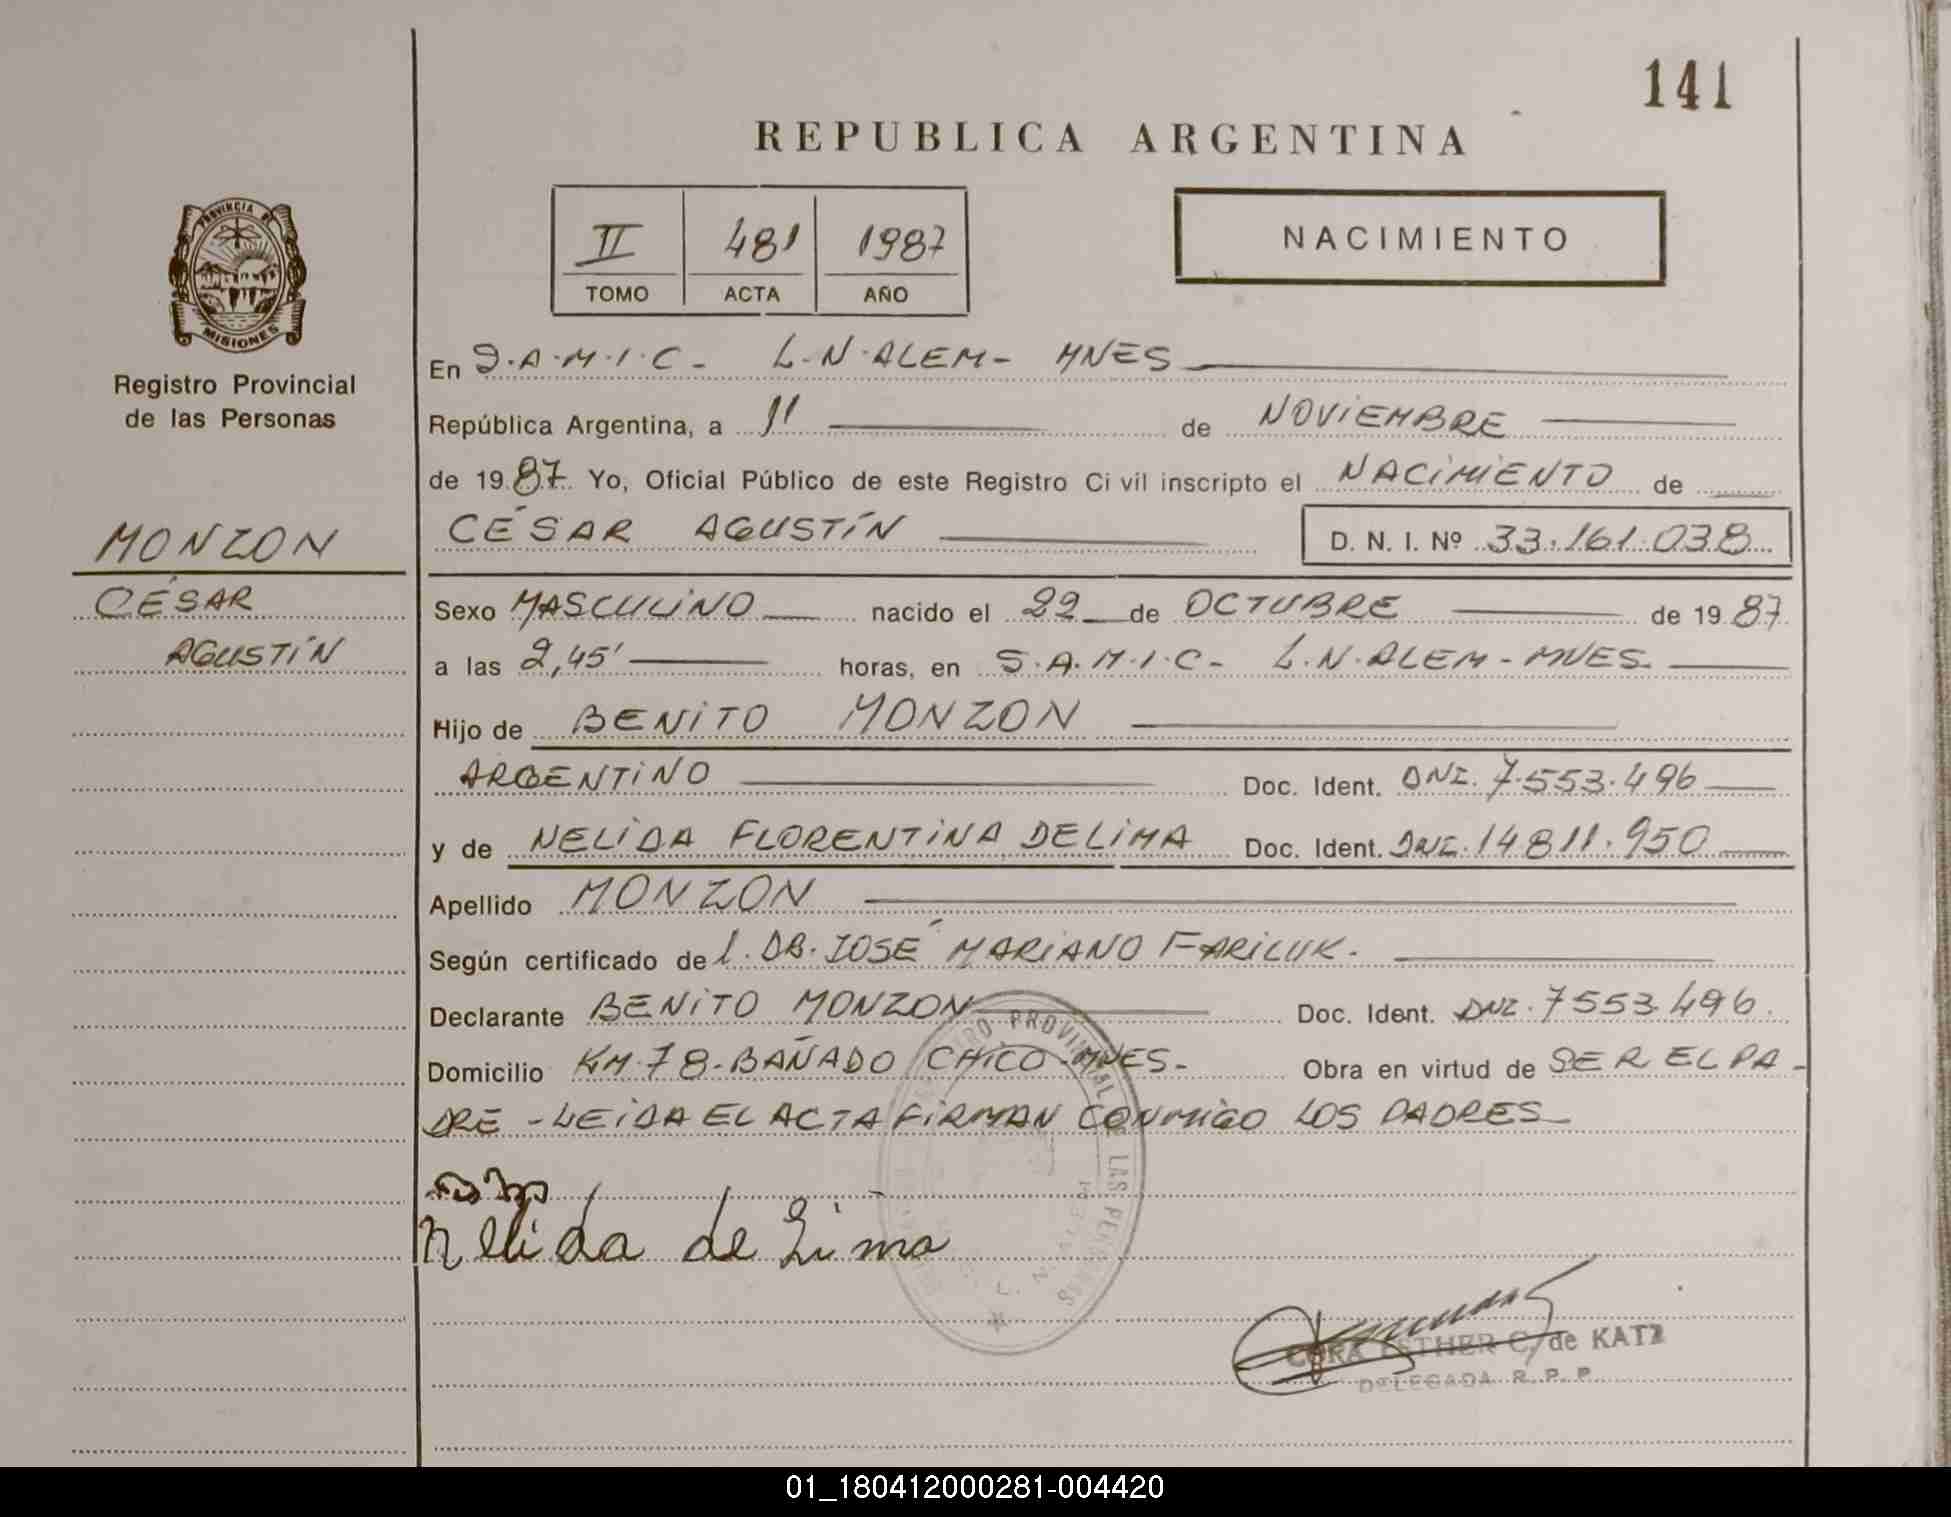 141
REPUBLICA ARGENTINA
PROVINCIA DE
MISIONES
Registro Provincial
de las Personas
II 481 1987
TOMO ACTA AÑO
NACIMIENTO
En S.A.M.I.C- L.N.ALEM- MNES
República Argentina, a 11 de NOVIEMBRE
de 1987 Yo, Oficial Público de este Registro Civil inscripto el NACIMIENTO de
MONZON
CÉSAR AGUSTÍN D. N. I. Nº 33.161.038
CÉSAR
AGUSTÍN
Sexo MASCULINO nacido el 22 de OCTUBRE de 1987
a las 2,45' horas, en S.A.M.I.C- L.N.ALEM-MNES.
Hijo de BENITO MONZON
ARGENTINO Doc. Ident. DNI. 7.553.496
y de NELIDA FLORENTINA DELIMA Doc. Ident. DNI. 14811.950
Apellido MONZON
Según certificado de l. DR. JOSÉ MARIANO FARILUK.
Declarante BENITO MONZON Doc. Ident. DNI. 7553.496.
Domicilio KM.78-BAÑADO CHICO-MNES- Obra en virtud de SER EL PA-
DRE -LEIDA EL ACTA FIRMAN CONMIGO LOS PADRES
Nelida de Lima
PROVINCIAL DE LAS PERSONAS
L. N. ALEM
CORA ESTHER C. de KATZ
DELEGADA R. P. P.
01_180412000281-004420